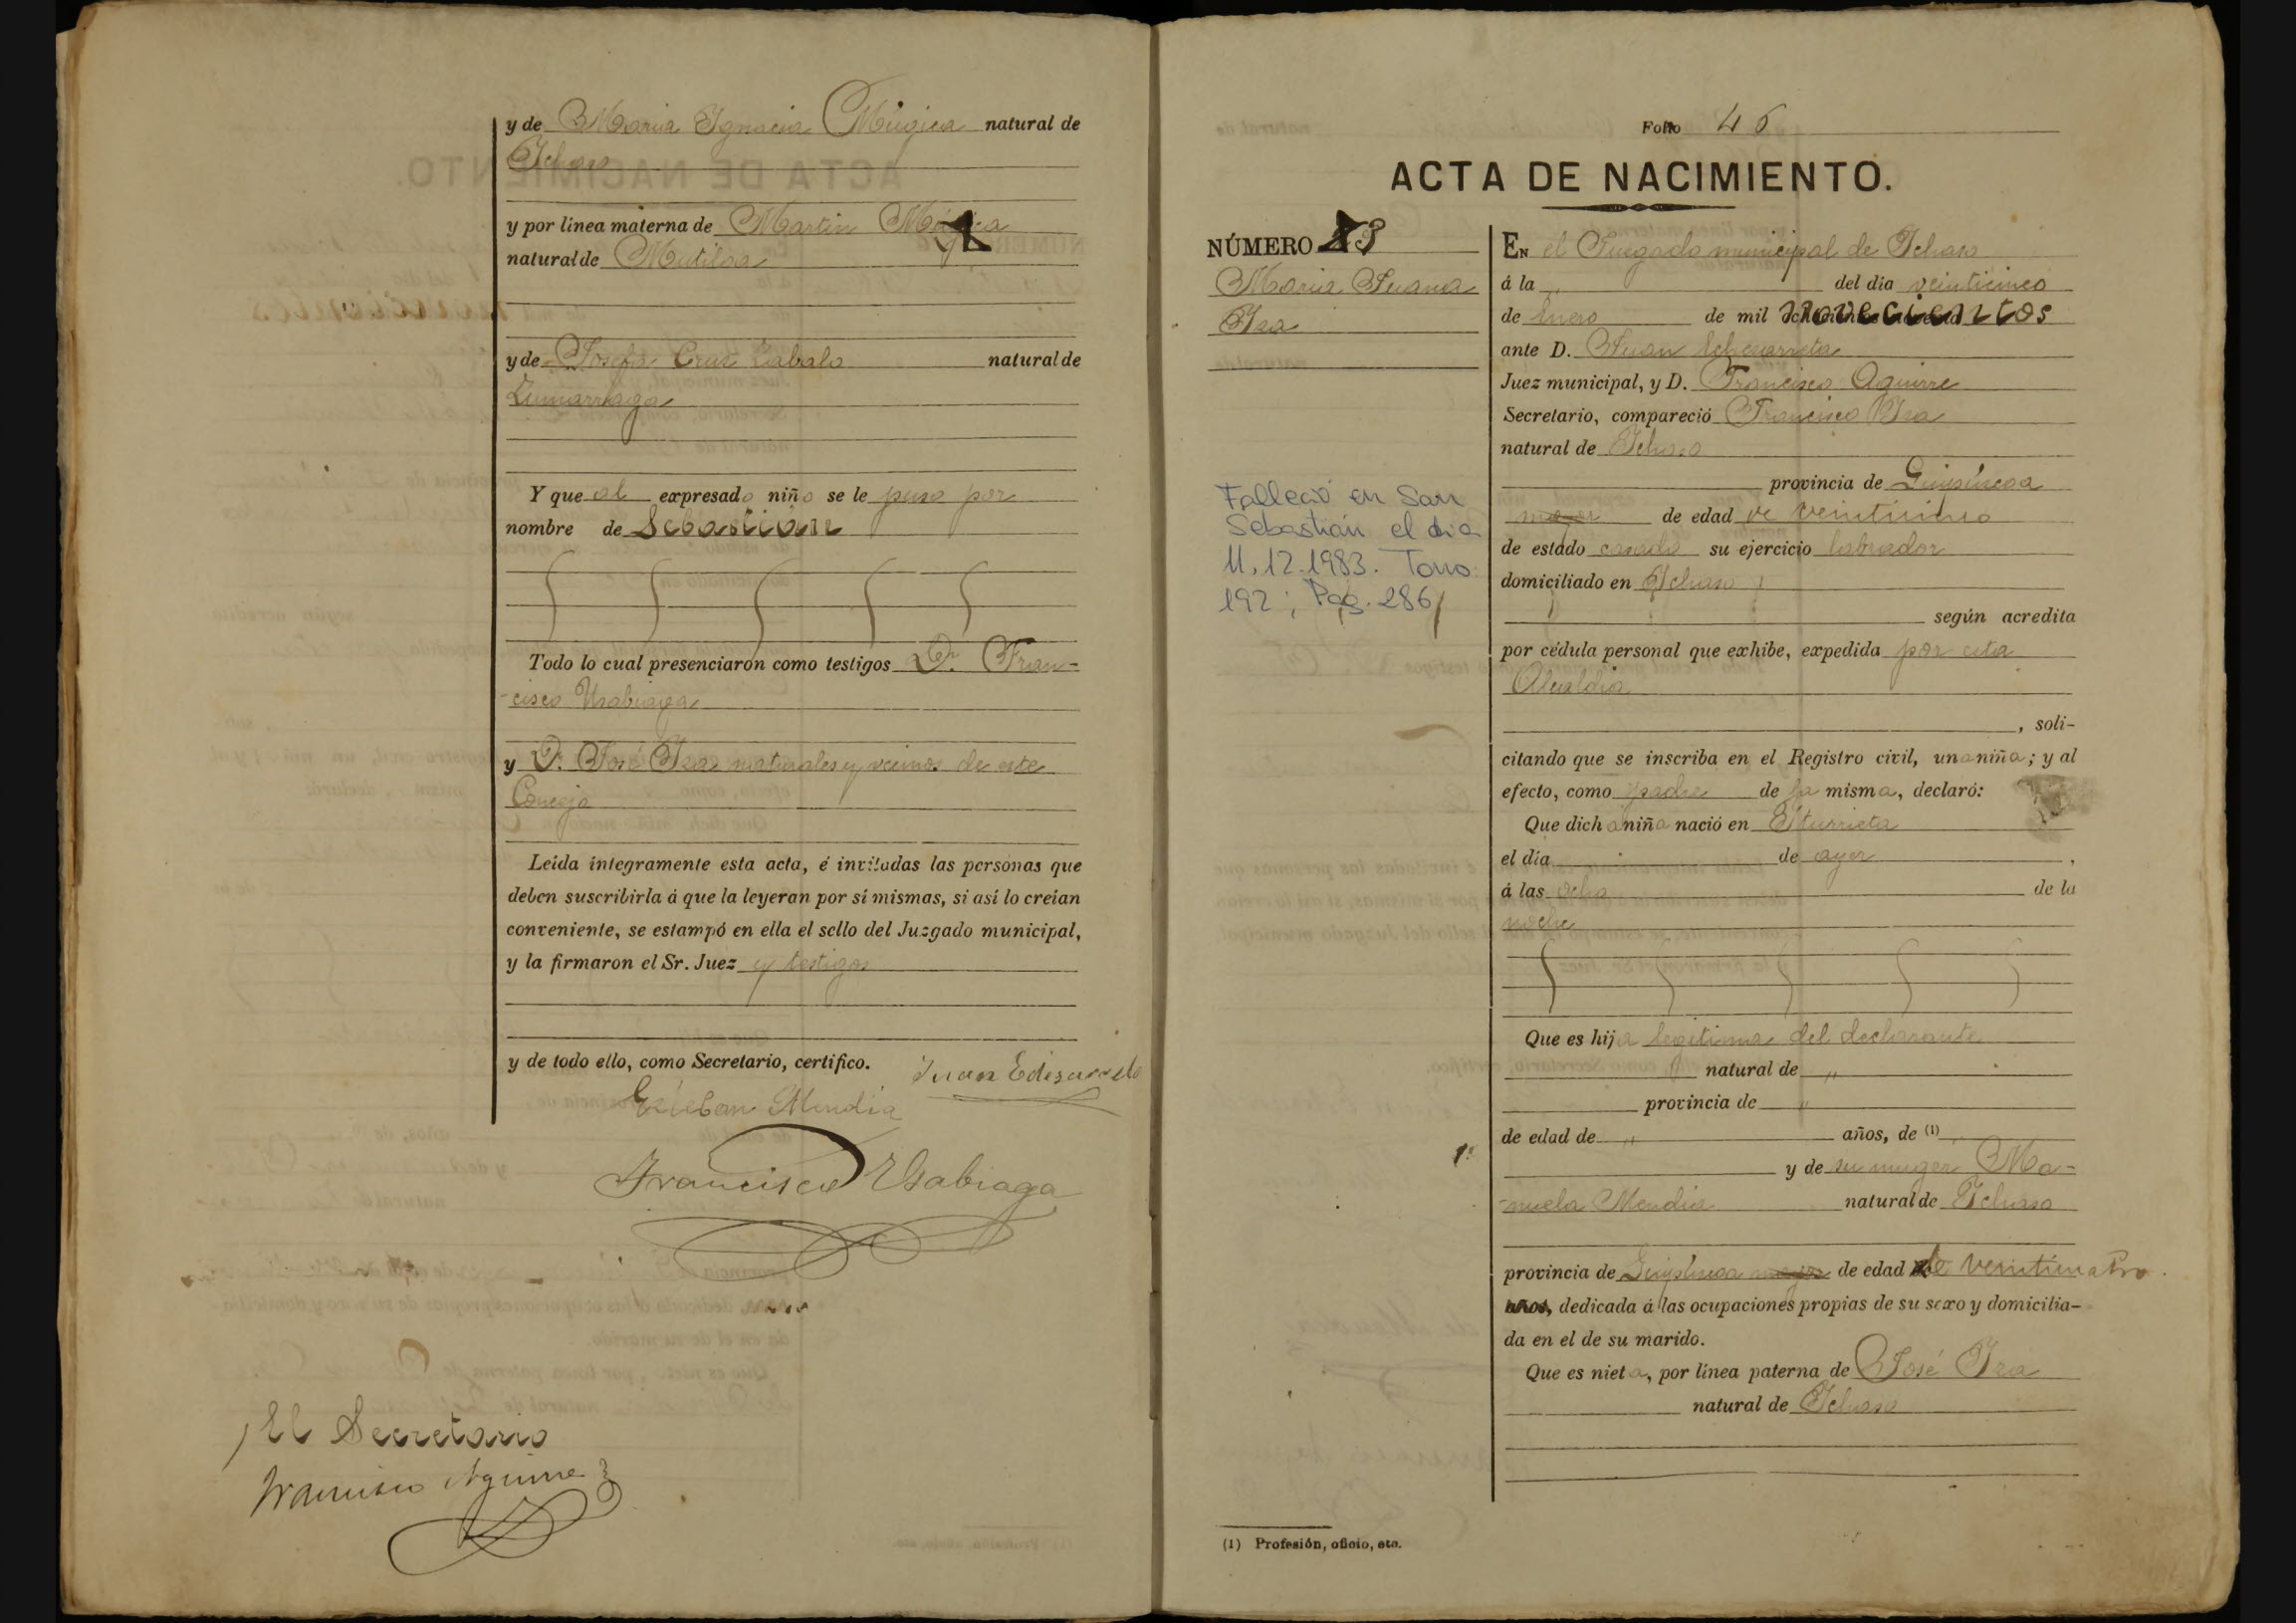 y de Maria Ignacia Múgica natural de
Ichaso
y por línea materna de Martin Múgica
natural de Mutiloa
y de Josefa Cruz Zabala natural de
Zumarraga
Y que al expresado niño se le puso por
nombre de Sebastián
Todo lo cual presenciaron como testigos Dn. Fran-
-cisco Usabiaga
y D. José Iza naturales y vecinos de este
Concejo
Leída íntegramente esta acta, é invitadas las personas que
deben suscribirla á que la leyeran por sí mismas, si así lo creían
conveniente, se estampó en ella el sello del Juzgado municipal,
y la firmaron el Sr. Juez y testigos
y de todo ello, como Secretario, certifico.
Juan
Esteban Mendia
Francisco Usabiaga
El Secretario
Francisco Aguirre
Folio 46
ACTA DE NACIMIENTO.
NÚMERO
Maria Juana
Iza
Falleció en San
Sebastián el dia
11.12.1983. Tomo:
192; Pag. 286
EN el Juzgado municipal de Ichaso
á la " del día veinticinco
de Enero de mil novecientos
ante D. Juan Echezarreta
Juez municipal, y D. Francisco Aguirre
Secretario, compareció Francisco Iza
natural de Ichaso
provincia de Guipúzcoa
mayor de edad de veinticinco
de estado casado su ejercicio labrador
domiciliado en Ichaso
según acredita
por cédula personal que exhibe, expedida por esta
Alcaldia
, soli-
citando que se inscriba en el Registro civil, una niña; y al
efecto, como padre de la misma, declaró:
Que dicha niña nació en Iturrieta
el día de ayer,
á las ocho de la
noche
Que es hija legitima del declarante
natural de "
provincia de "
de edad de " años, de (1) "
y de su muger Ma-
-nuela Mendia natural de Ichaso
provincia de Guipúzcoa mayor de edad de veinticuatro
años, dedicada á las ocupaciones propias de su sexo y domicilia-
da en el de su marido.
Que es nieta, por línea paterna de José Iza
natural de Ichaso
(1) Profesión, oficio, etc.